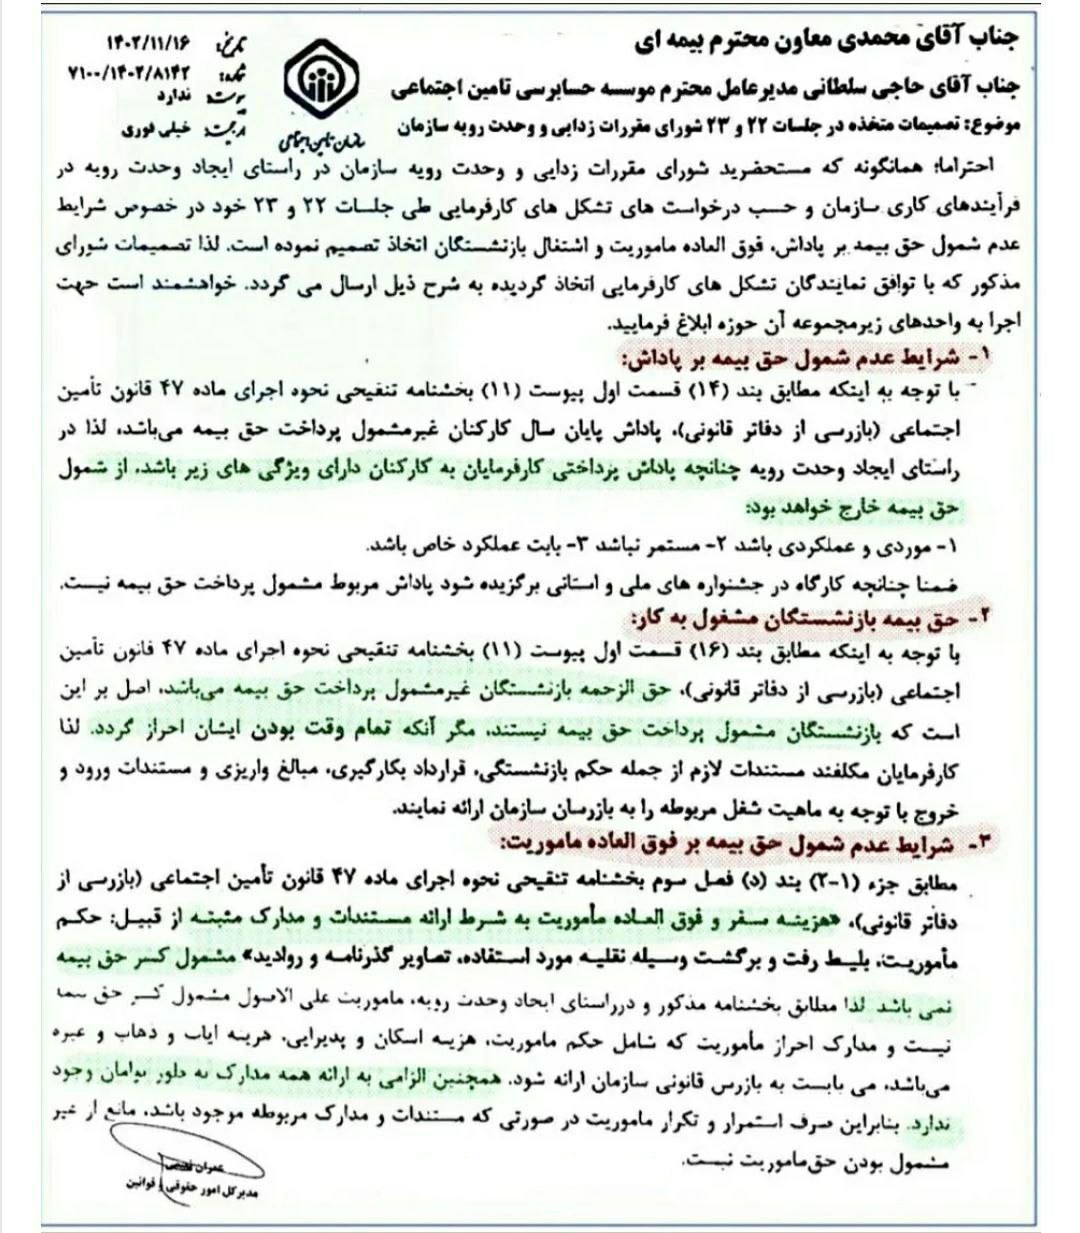 جناب آقای محمدی معاون محترم بیمه ای
جناب آقای حاجی سلطانی مدیرعامل محترم موسسه حسابرسی تامین اجتماعی
موضوع: تصمیمات متخذه در جلسات ۲۲ و ۲۳ شورای مقررات زدایی و وحدت رویه سازمان
تاریخ: ۱۴۰۲/۱۱/۱۶
شماره: ۷۱۰۰/۱۴۰۲/۸۱۴۲
پیوست: ندارد
خیلی فوری
سازمان تأمین اجتماعی
احتراما؛ همانگونه که مستحضرید شورای مقررات زدایی و وحدت رویه سازمان در راستای ایجاد وحدت رویه در
فرآیندهای کاری سازمان و حسب درخواست های تشکل های کارفرمایی طی جلسات ۲۲ و ۲۳ خود در خصوص شرایط
عدم شمول حق بیمه بر پاداش، فوق العاده ماموریت و اشتغال بازنشستگان اتخاذ تصمیم نموده است. لذا تصمیمات شورای
مذکور که با توافق نمایندگان تشکل های کارفرمایی اتخاذ گردیده به شرح ذیل ارسال می گردد. خواهشمند است جهت
اجرا به واحدهای زیرمجموعه آن حوزه ابلاغ فرمایید.
۱- شرایط عدم شمول حق بیمه بر پاداش:
با توجه به اینکه مطابق بند (۱۴) قسمت اول پیوست (۱۱) بخشنامه تنقیحی نحوه اجرای ماده ۴۷ قانون تأمین
اجتماعی (بازرسی از دفاتر قانونی)، پاداش پایان سال کارکنان غیرمشمول پرداخت حق بیمه می‌باشد، لذا در
راستای ایجاد وحدت رویه چنانچه پاداش پرداختی کارفرمایان به کارکنان دارای ویژگی های زیر باشد، از شمول
حق بیمه خارج خواهد بود:
۱- موردی و عملکردی باشد ۲- مستمر نباشد ۳- بابت عملکرد خاص باشد.
ضمنا چنانچه کارگاه در جشنواره های ملی و استانی برگزیده شود پاداش مربوط مشمول پرداخت حق بیمه نیست.
۲- حق بیمه بازنشستگان مشغول به کار:
با توجه به اینکه مطابق بند (۱۶) قسمت اول پیوست (۱۱) بخشنامه تنقیحی نحوه اجرای ماده ۴۷ قانون تأمین
اجتماعی (بازرسی از دفاتر قانونی)، حق الزحمه بازنشستگان غیرمشمول پرداخت حق بیمه می‌باشد، اصل بر این
است که بازنشستگان مشمول پرداخت حق بیمه نیستند، مگر آنکه تمام وقت بودن ایشان احراز گردد. لذا
کارفرمایان مکلفند مستندات لازم از جمله حکم بازنشستگی، قرارداد بکارگیری، مبالغ واریزی و مستندات ورود و
خروج با توجه به ماهیت شغل مربوطه را به بازرسان سازمان ارائه نمایند.
۳- شرایط عدم شمول حق بیمه بر فوق العاده ماموریت:
مطابق جزء (۱-۲) بند (د) فصل سوم بخشنامه تنقیحی نحوه اجرای ماده ۴۷ قانون تأمین اجتماعی (بازرسی از
دفاتر قانونی)، «هزینه سفر و فوق العاده مأموریت به شرط ارائه مستندات و مدارک مثبته از قبیل: حکم
مأموریت، بلیط رفت و برگشت وسیله نقلیه مورد استفاده، تصاویر گذرنامه و روادید» مشمول کسر حق بیمه
نمی باشد. لذا مطابق بخشنامه مذکور و درراستای ایجاد وحدت رویه، ماموریت علی الاصول مشمول کسر حق بیمه
نیست و مدارک احراز مأموریت که شامل حکم ماموریت، هزینه اسکان و پذیرایی، هزینه ایاب و ذهاب و غیره
می‌باشد، می بایست به بازرس قانونی سازمان ارائه شود. همچنین الزامی به ارائه همه مدارک به طور توامان وجود
ندارد. بنابراین صرف استمرار و تکرار ماموریت در صورتی که مستندات و مدارک مربوطه موجود باشد، مانع از غیر
مشمول بودن حق‌ماموریت نیست.
عمران نعیمی
مدیرکل امور حقوقی و قوانین